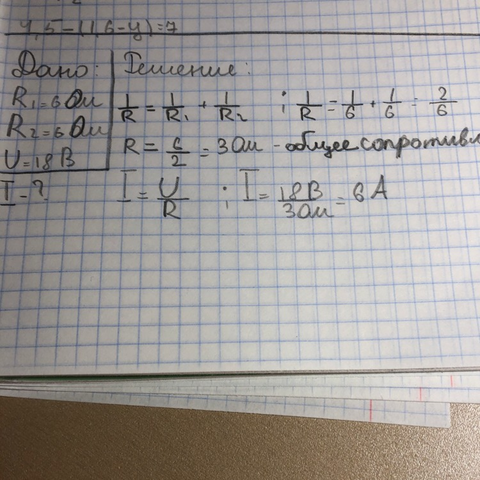 4,5-(1,6-y)=7
Дано: Решение:
R₁=6 Ом
R₂=6 Ом
U=18 В
I-?
1/R = 1/R₁ + 1/R₂ ; 1/R = 1/6 + 1/6 = 2/6
R = 6/2 = 3 Ом - общее сопротивл
I = U/R ; I = 18В/3Ом = 6 А